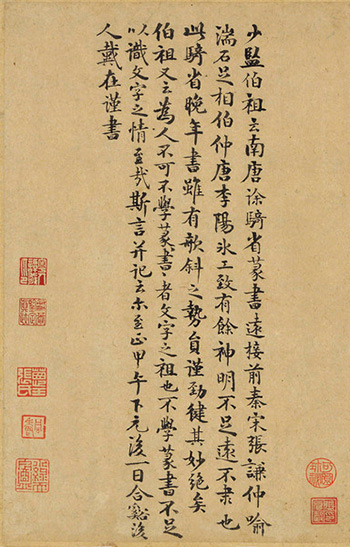 少監伯祖云南唐徐騎省篆書遠接前秦宋張謙仲喻
湍石足相伯仲唐李陽氷工致有餘神明不足遠不隶也
此騎省晚年書雖有欹斜之勢貟謹勁健其妙絕矣
伯祖又云為人不可不學篆書〻者文字之祖也不學篆書不足
以識文字之情至哉斯言并記云尒至正甲午下元後一日合谿後
人戴在謹書